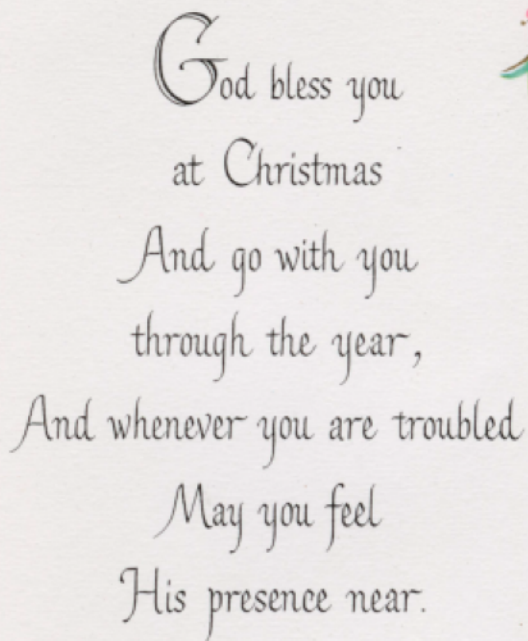 God bless you
at Christmas
And go with you
through the year,
And whenever you are troubled
May you feel
His presence near.